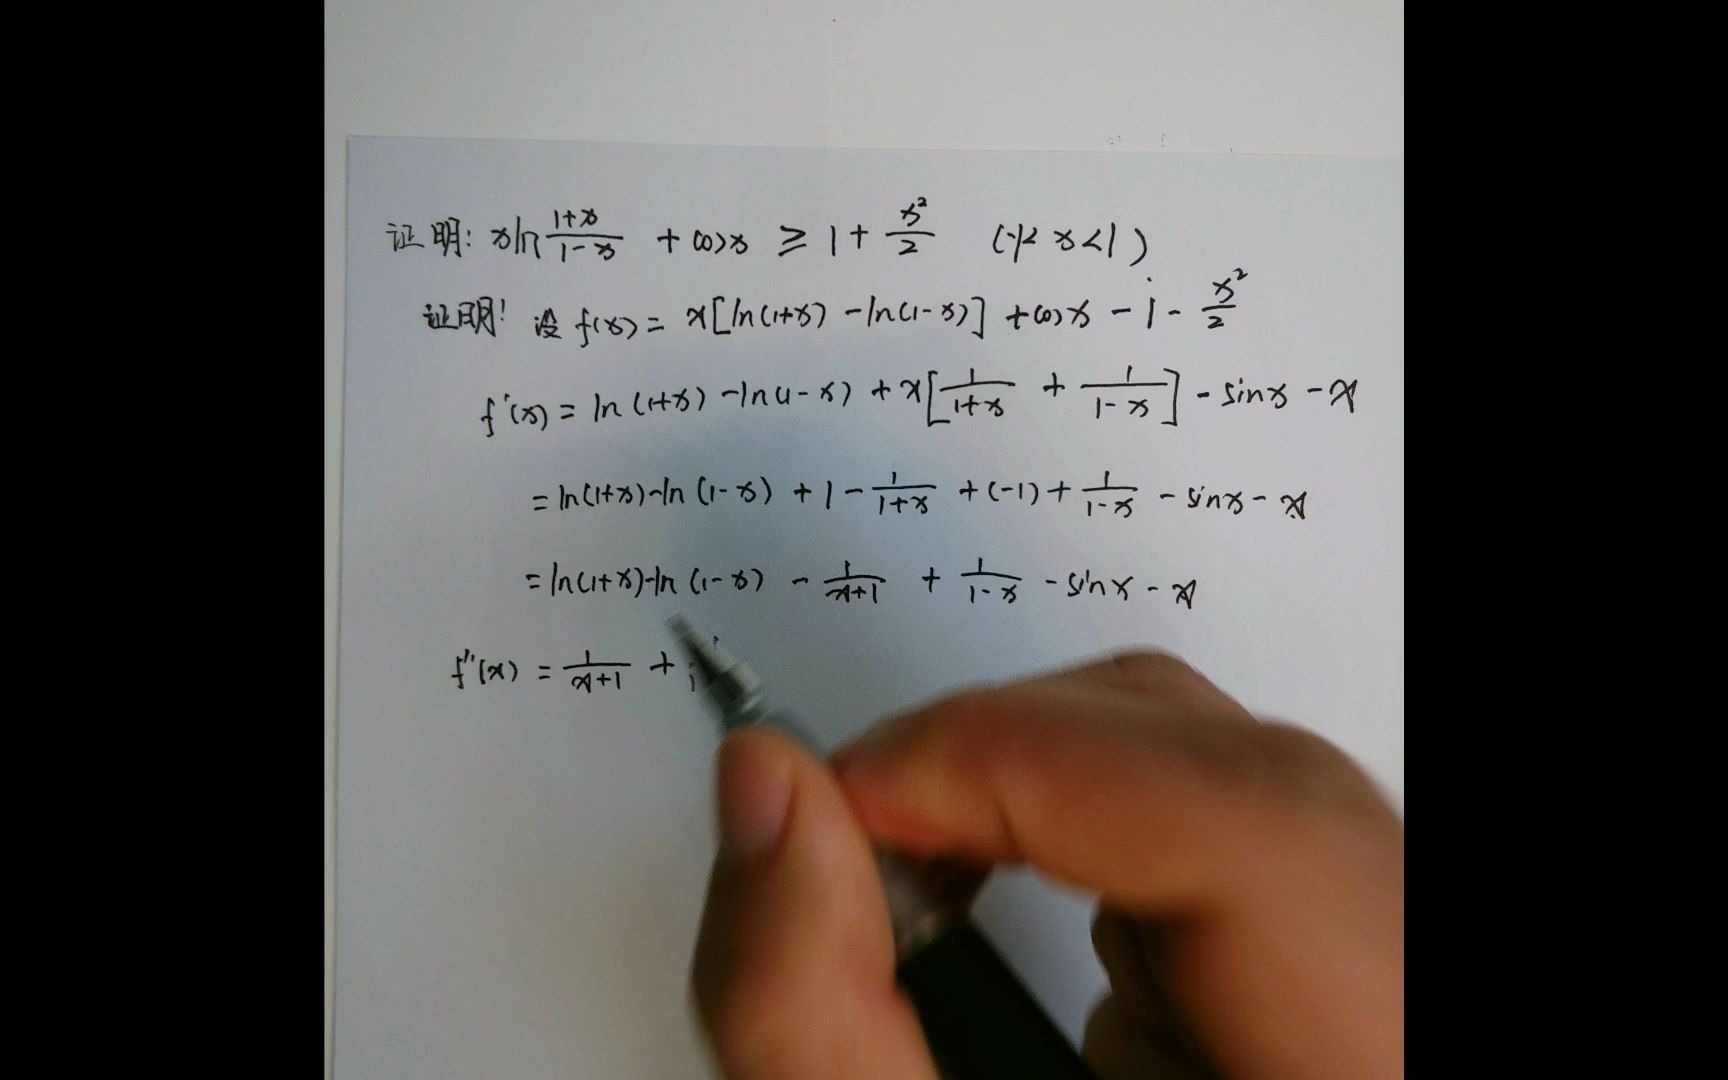 证明: xln (1+x)/(1-x) + cosx ≥ 1 + x²/2 (-1< x<1)
证明: 设 f(x) = x[ln(1+x) - ln(1-x)] + cosx - 1 - x²/2
f'(x) = ln(1+x) - ln(1-x) + x[1/(1+x) + 1/(1-x)] - sinx - x
= ln(1+x) - ln(1-x) + 1 - 1/(1+x) + (-1) + 1/(1-x) - sinx - x
= ln(1+x) - ln(1-x) - 1/(x+1) + 1/(1-x) - sinx - x
f''(x) = 1/(x+1) +